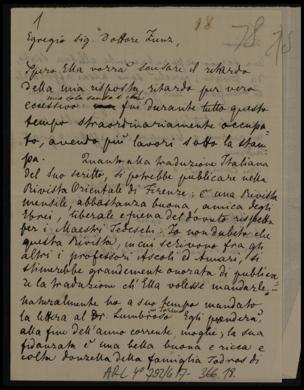 1
18
78
Egregio Sig.r Dottore Zunz,
Spero Ella vorrà scusare il ritardo
della mia risposta, ritardo per vero
eccessivo fui durante tutto questo
tempo straordinariamente occupa-
to, avendo più lavori sotto la stam-
pa. Quanto alla traduzione Italiana
del suo scritto, si potrebbe publicare nella
Rivista Orientale di Firenze: è una Rivista
mensile, abbastanza buona, amica degli
Ebrei, liberale e piena del dovuto rispetto
per i Maestri Tedeschi. Io non dubito che
questa Rivista, in cui scrivono fra gli
altri i professori Ascoli ed Amari, si
stimerebbe grandemente onorata di publica-
re la traduzione ch'Ella volesse mandarle.
naturalmente ho a suo tempo mandato
la lettera al Dr. Lumbroso in Torino Egli prenderà,
alla fine dell'anno corrente, moglie; la sua
fidanzata è una bella buona e ricca e
colta donzella della famiglia Todros di
ARC 4° 792/G 7- 366.18